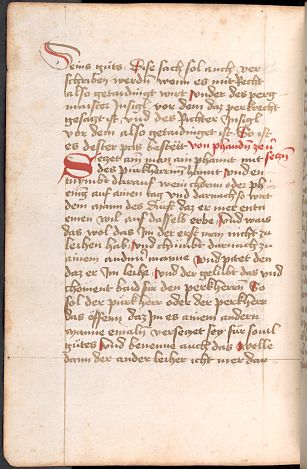 seins guts Dise sach sol auch ver
schriben werdn wenn es mit Recht
also getaidingt wirt vnder des perg
maister Insigl vor dem daz perkrecht
gesagt ist vnd des Richter Insigl
vor dem also getaidinget ist So ist
es dester pas bestett von phandn
Seczet ain man ain phannt mit
des purkherrnn hannt vnd en
nymbt darauf wein chorn oder ph
ing auf ainen tag vnd darnach so wirt
dem mann des Durf daz er mer entn
emen wil auf dasselb erbe vnd wais
das wol das Im der erst man nicht zu
leichen hab vnd chumbt darnach zu
ainem andern manne vnd pitet den
daz er Im leihe vnd der gelibt das vnd
choment baid für den perkherrn So
sol der purkherr oder der perkherr
das offenn daz In es ainem andern
manne emaln verseczet sey für souil
gutes vnd benenne auch das welle
dann der ander leihen icht mer dar